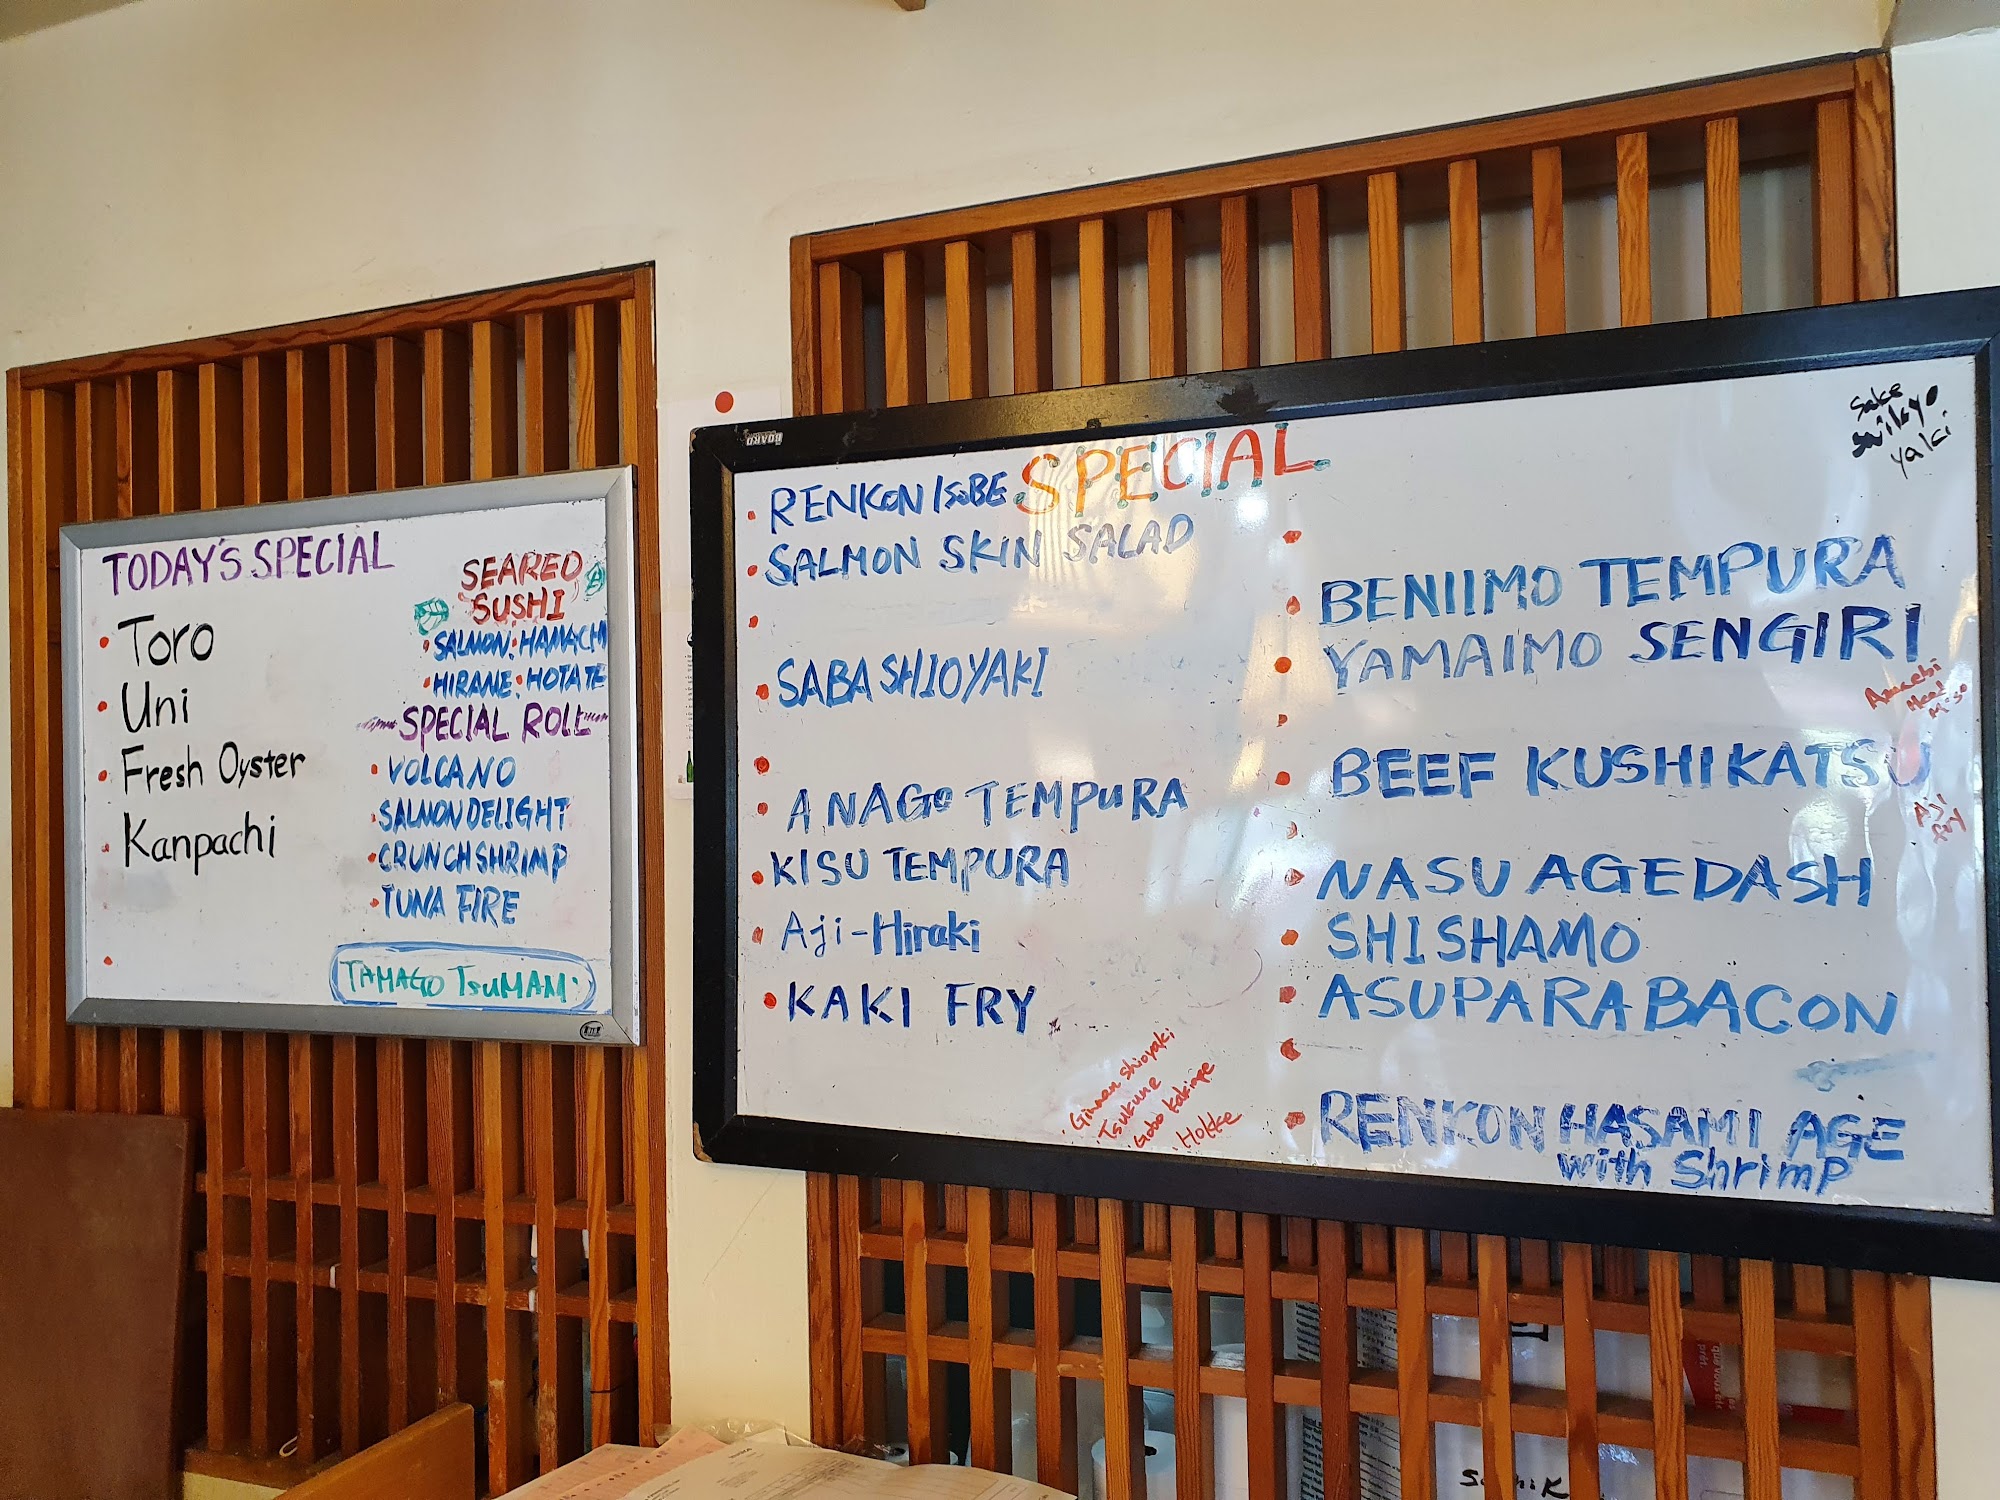 TODAY'S SPECIAL
Toro
Uni
Fresh Oyster
Kanpachi
SEARED
SUSHI
SALMON. HAMACHI
HIRAME. HOTATE
SPECIAL ROLL
VOLCANO
SALMON DELIGHT
CRUNCH SHRIMP
TUNA FIRE
TAMAGO TSUMAMI
SPECIAL
RENKON ISOBE
SALMON SKIN SALAD
SABA SHIOYAKI
ANAGO TEMPURA
KISU TEMPURA
Aji-Hiraki
KAKI FRY
Ginnan Shioyaki
Tsukune
Gobo Kakiage
Hokke
Sake
Saikyo
yaki
BENIIMO TEMPURA
YAMAIMO SENGIRI
Amaebi
Head
Miso
BEEF KUSHIKATSU
Aji
fry
NASU AGEDASH
SHISHAMO
ASUPARA BACON
RENKON HASAMI AGE
with Shrimp